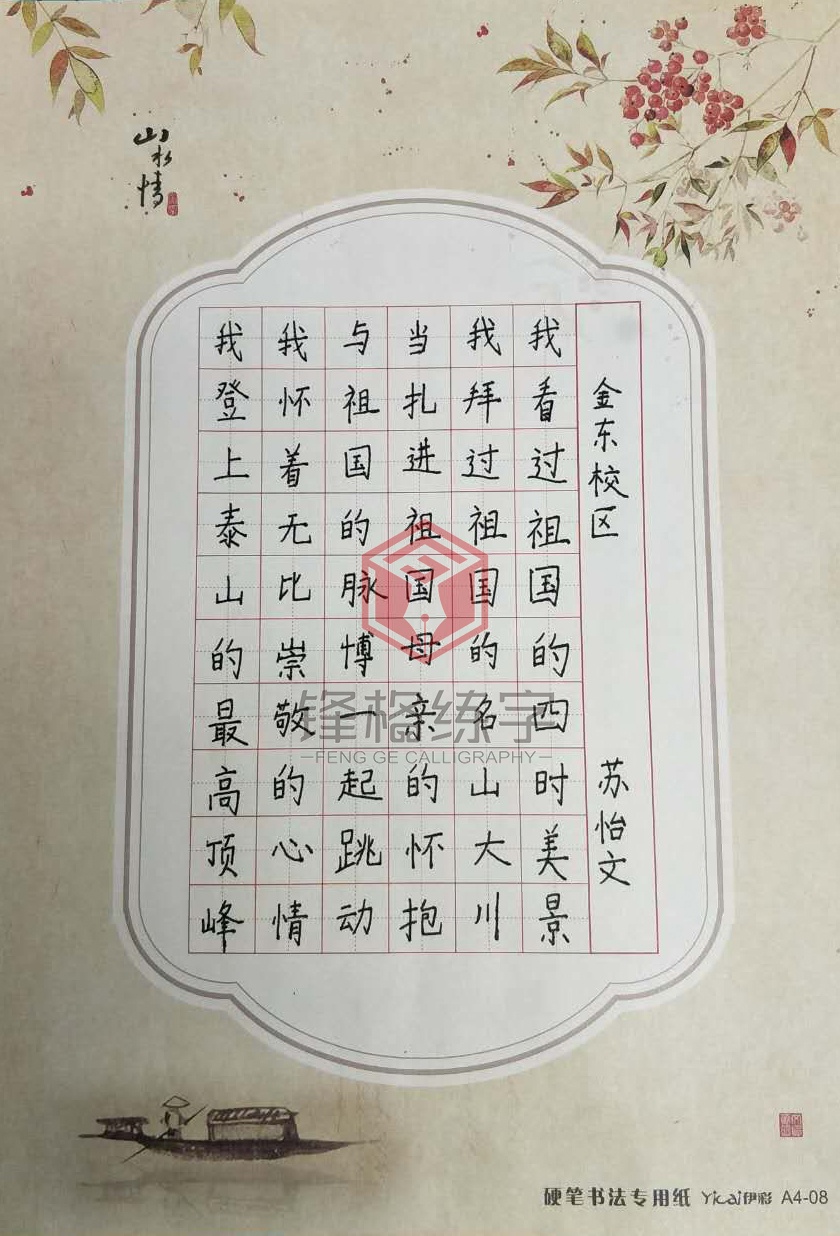 山水情
金东校区 苏怡文
我看过祖国的四时美景
我拜过祖国的名山大川
当扎进祖国母亲的怀抱
与祖国的脉愽一起跳动
我怀着无比崇敬的心情
我登上泰山的最高顶峰
锋格练字
FENG GE CALLIGRAPHY
硬笔书法专用纸 Yicai伊彩 A4-08